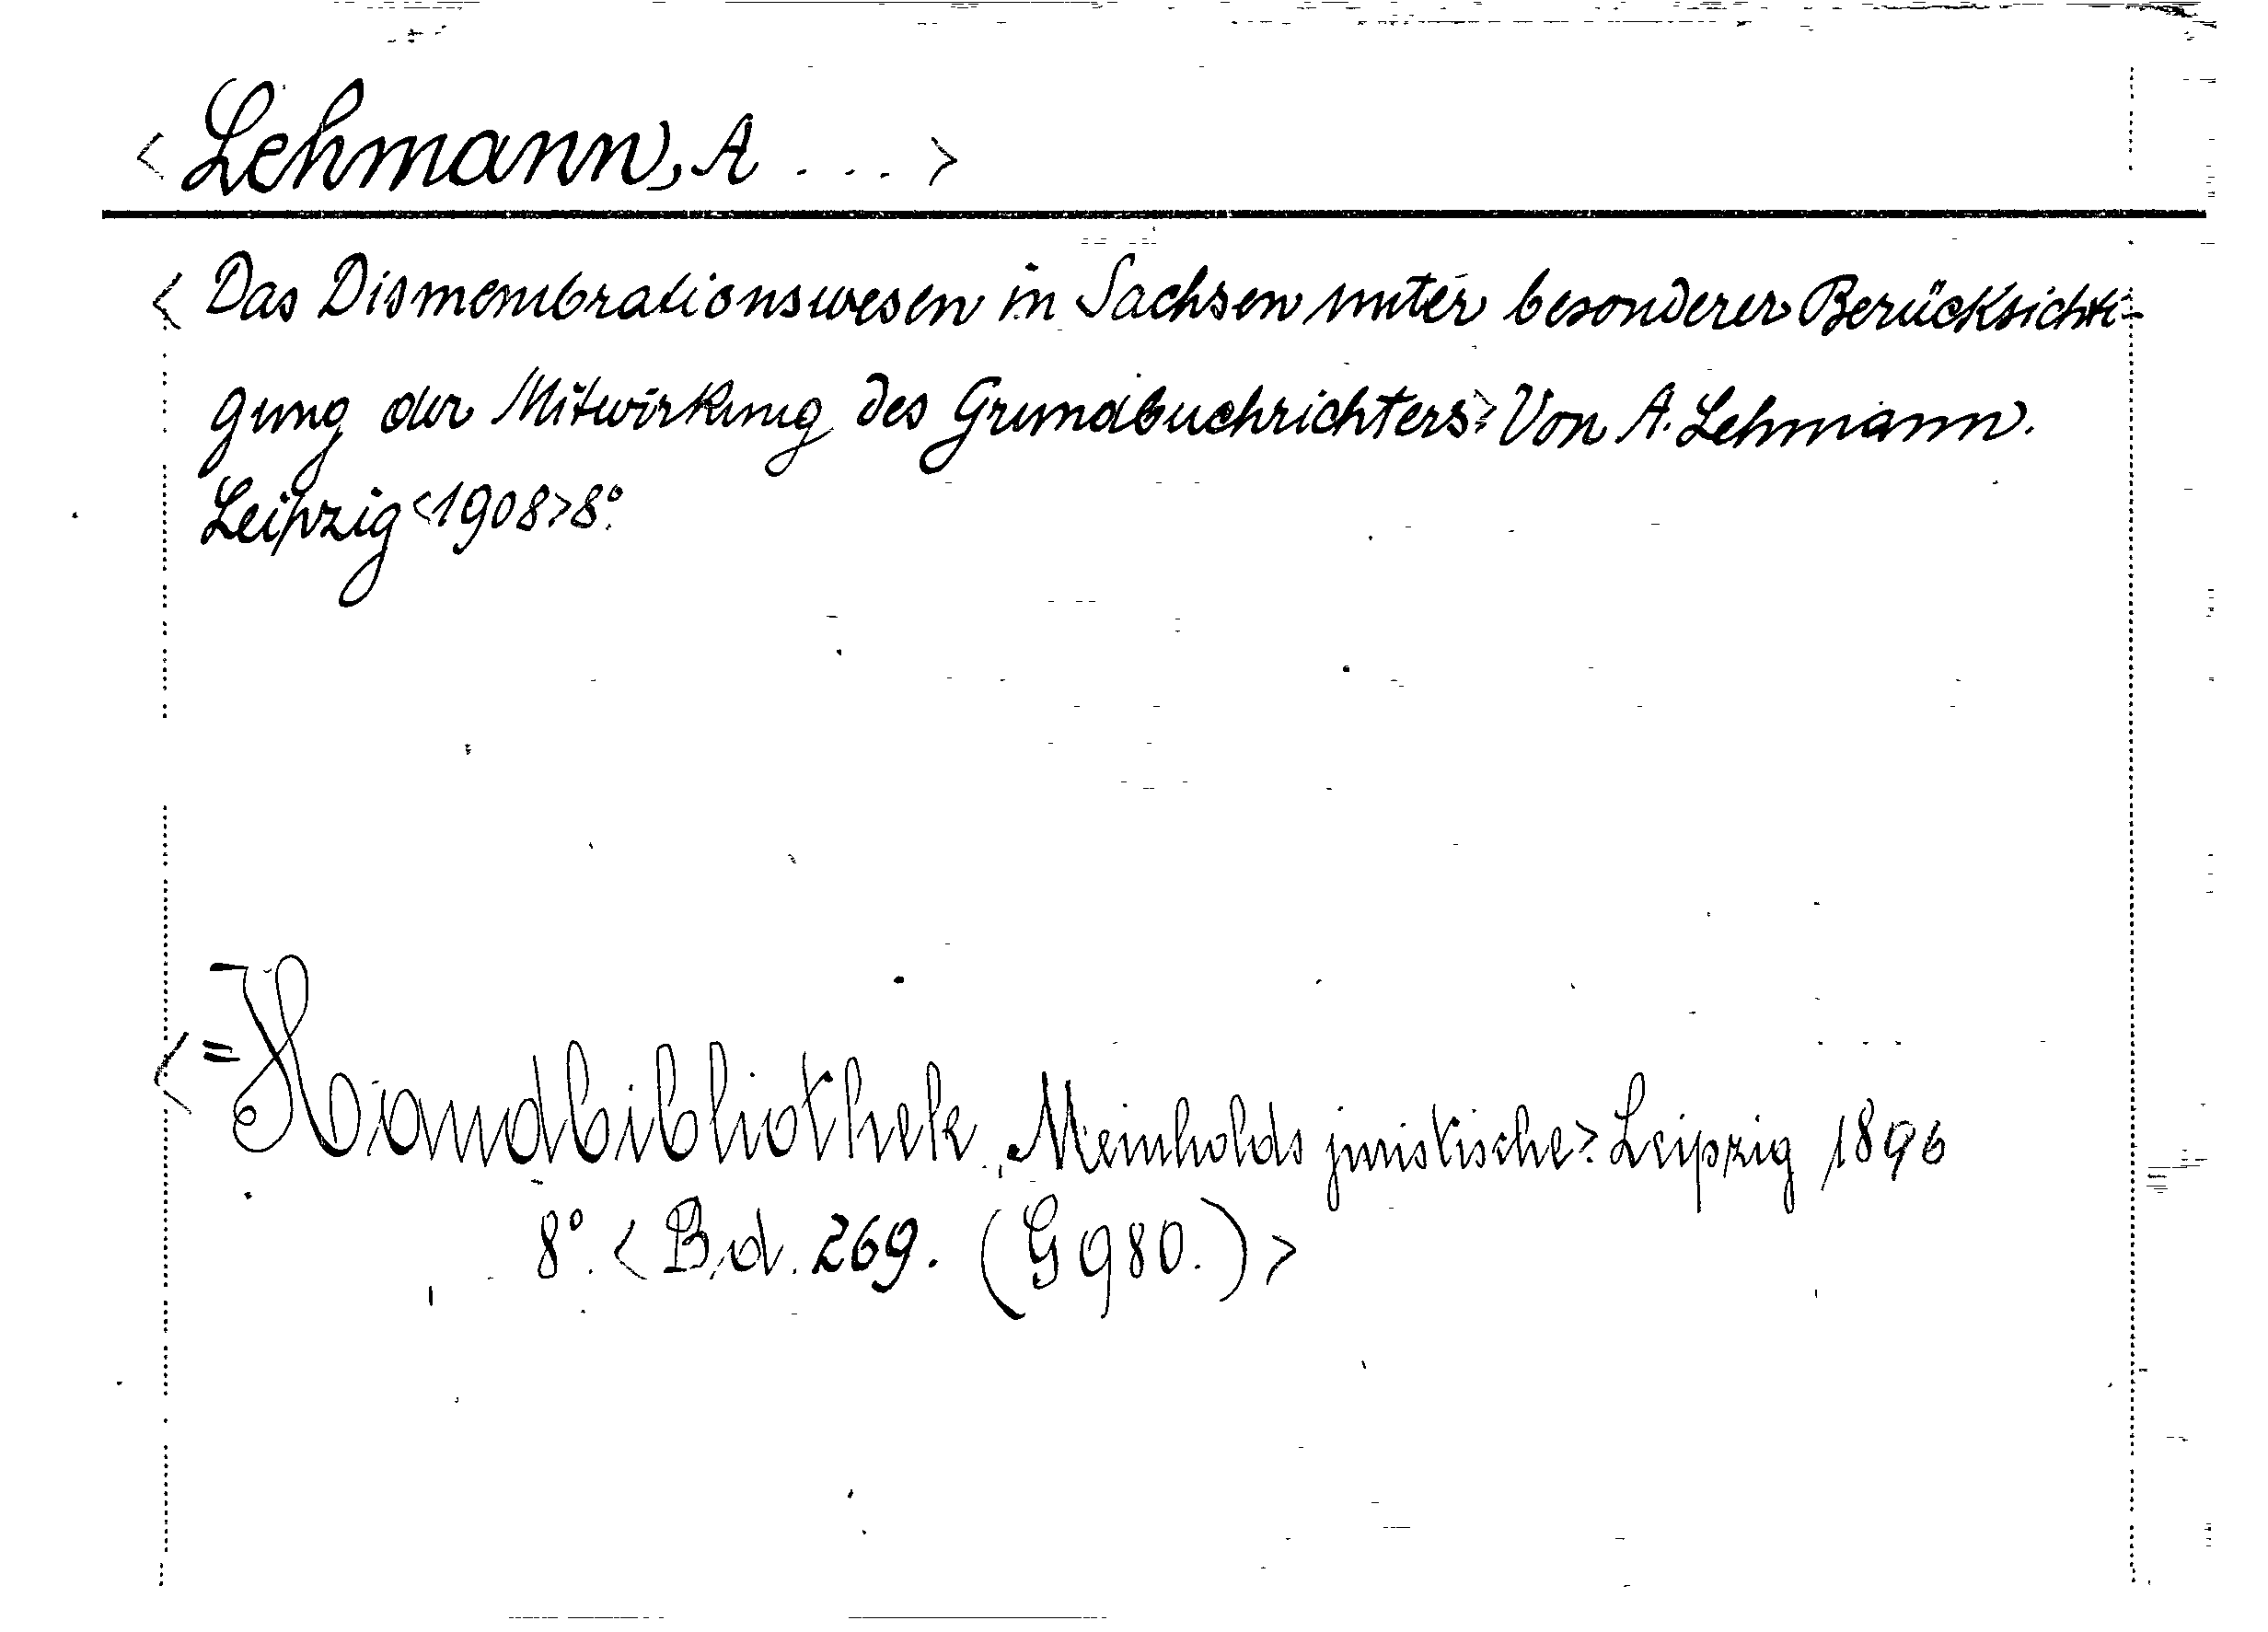 <Lehmann, A . . . >
< Das Dismembrationswesen in Sachsen unter besonderer Berücksichti-
gung der Mitwirkung des Grundbuchrichters> Von A. Lehmann.
Leipzig <1908> 8°.
< = Handbibliothek, Meinholds juristische>. Leipzig 1896
8°. < Bd. 269. (G 980.) >